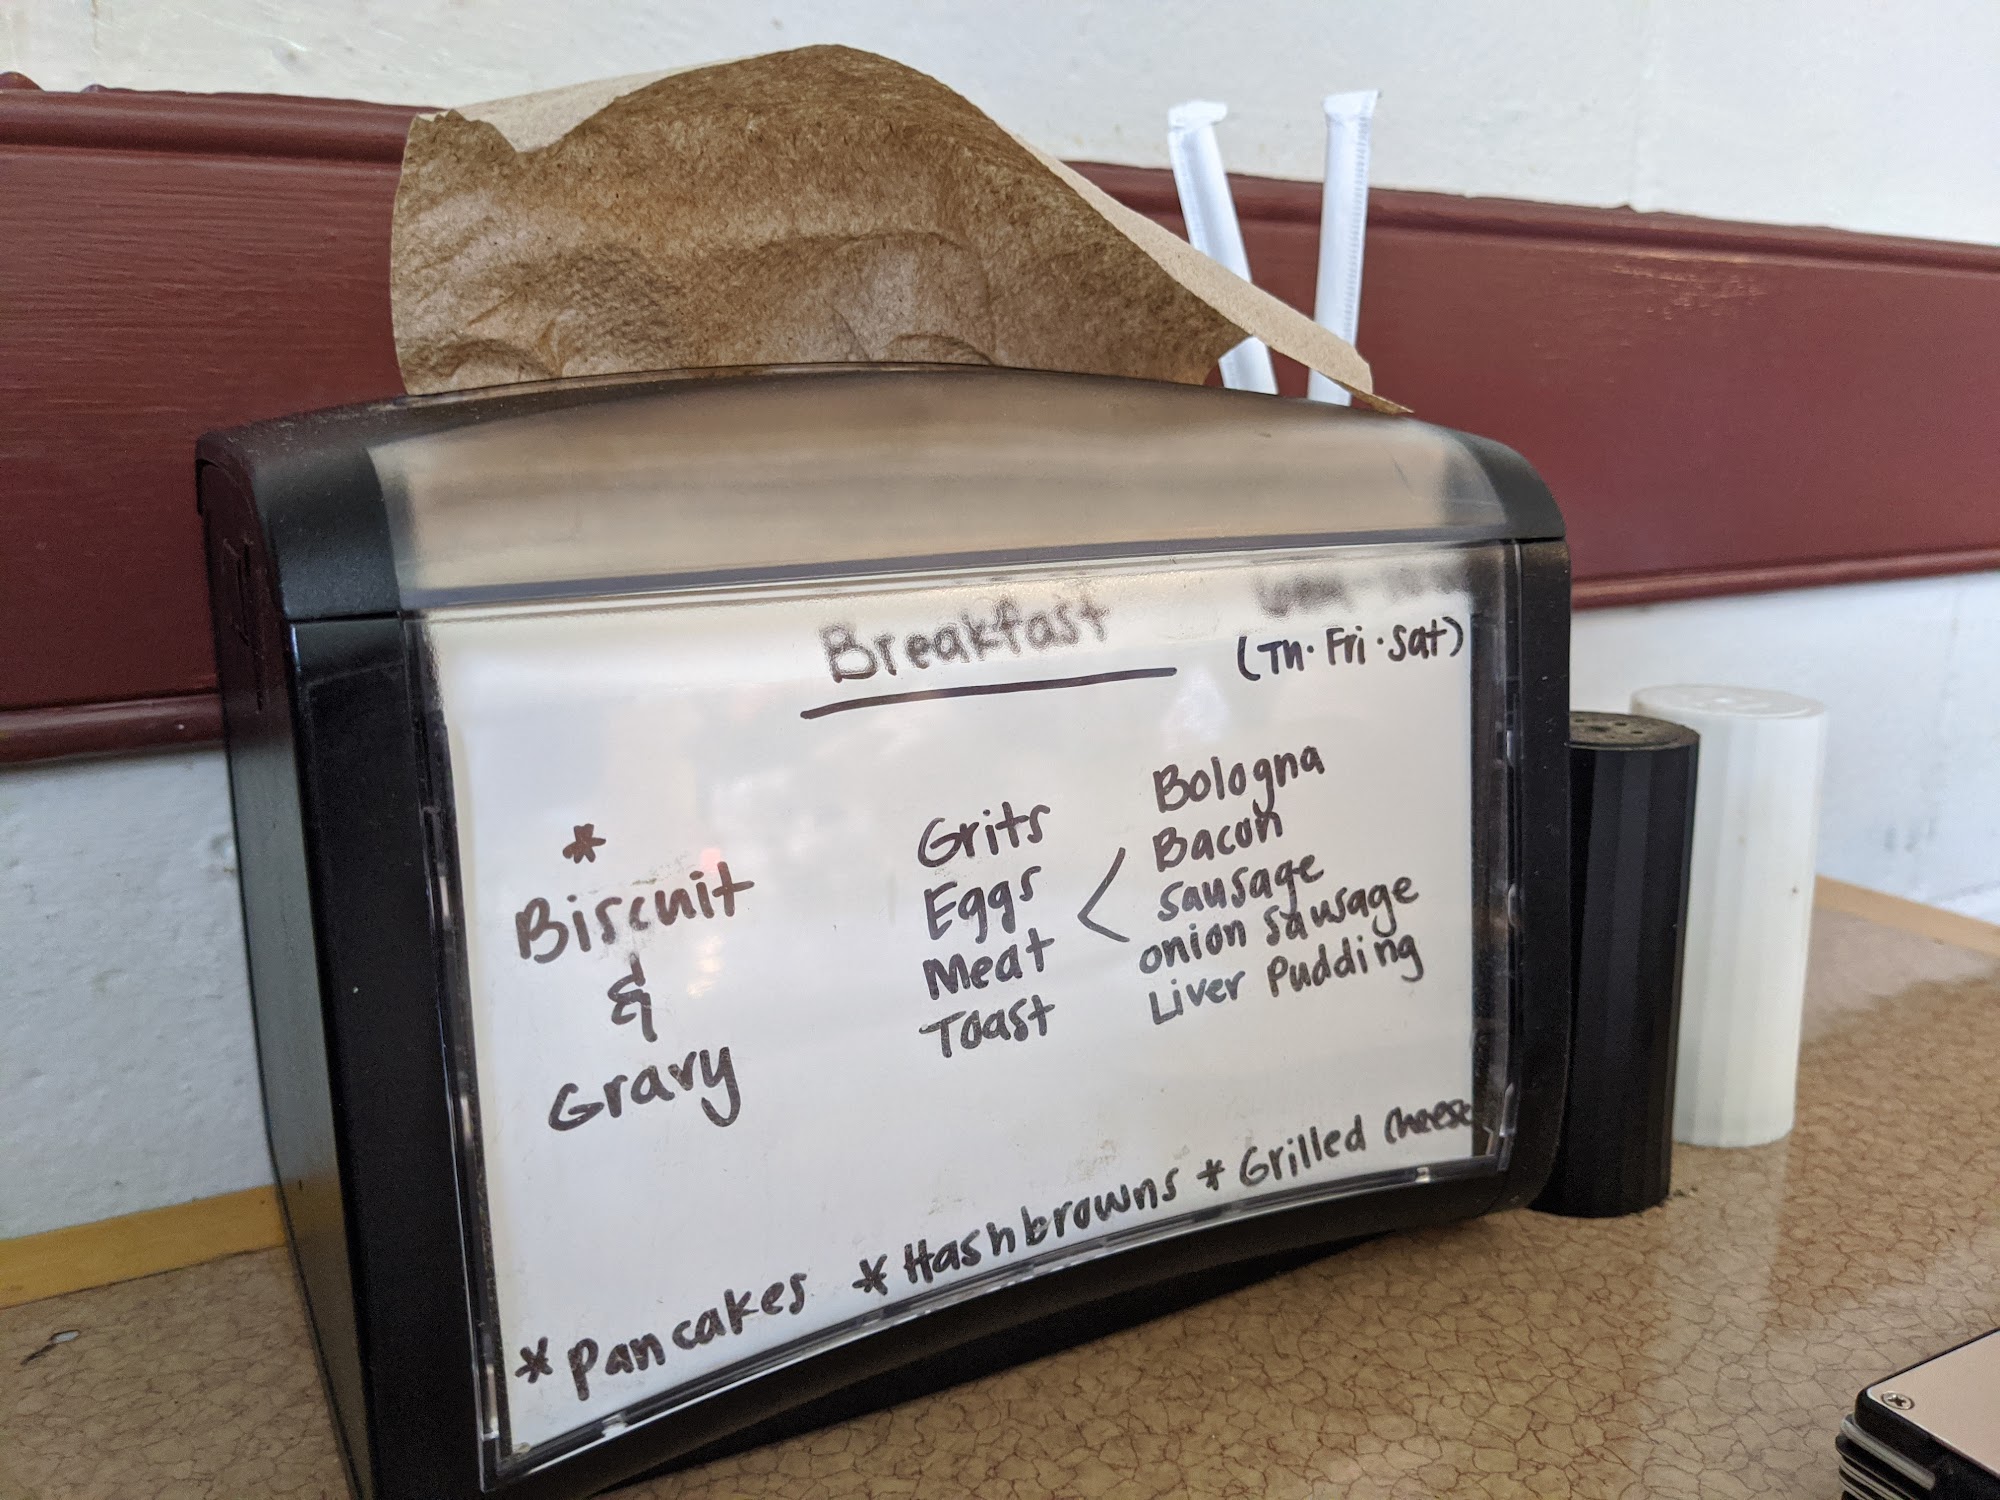 Breakfast
(Th. Fri. Sat)
*
Biscuit
&
Gravy
Grits
Eggs
Meat <
Toast
Bologna
Bacon
Sausage
onion sausage
Liver Pudding
* Pancakes * Hashbrowns * Grilled cheese